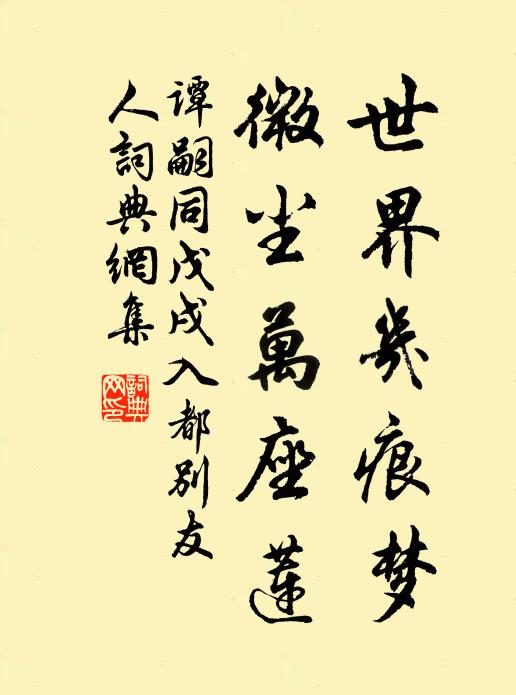 世界幾痕梦
微尘萬座蓮
谭嗣同戊戌入都别友
人詞典網集
詞典网印